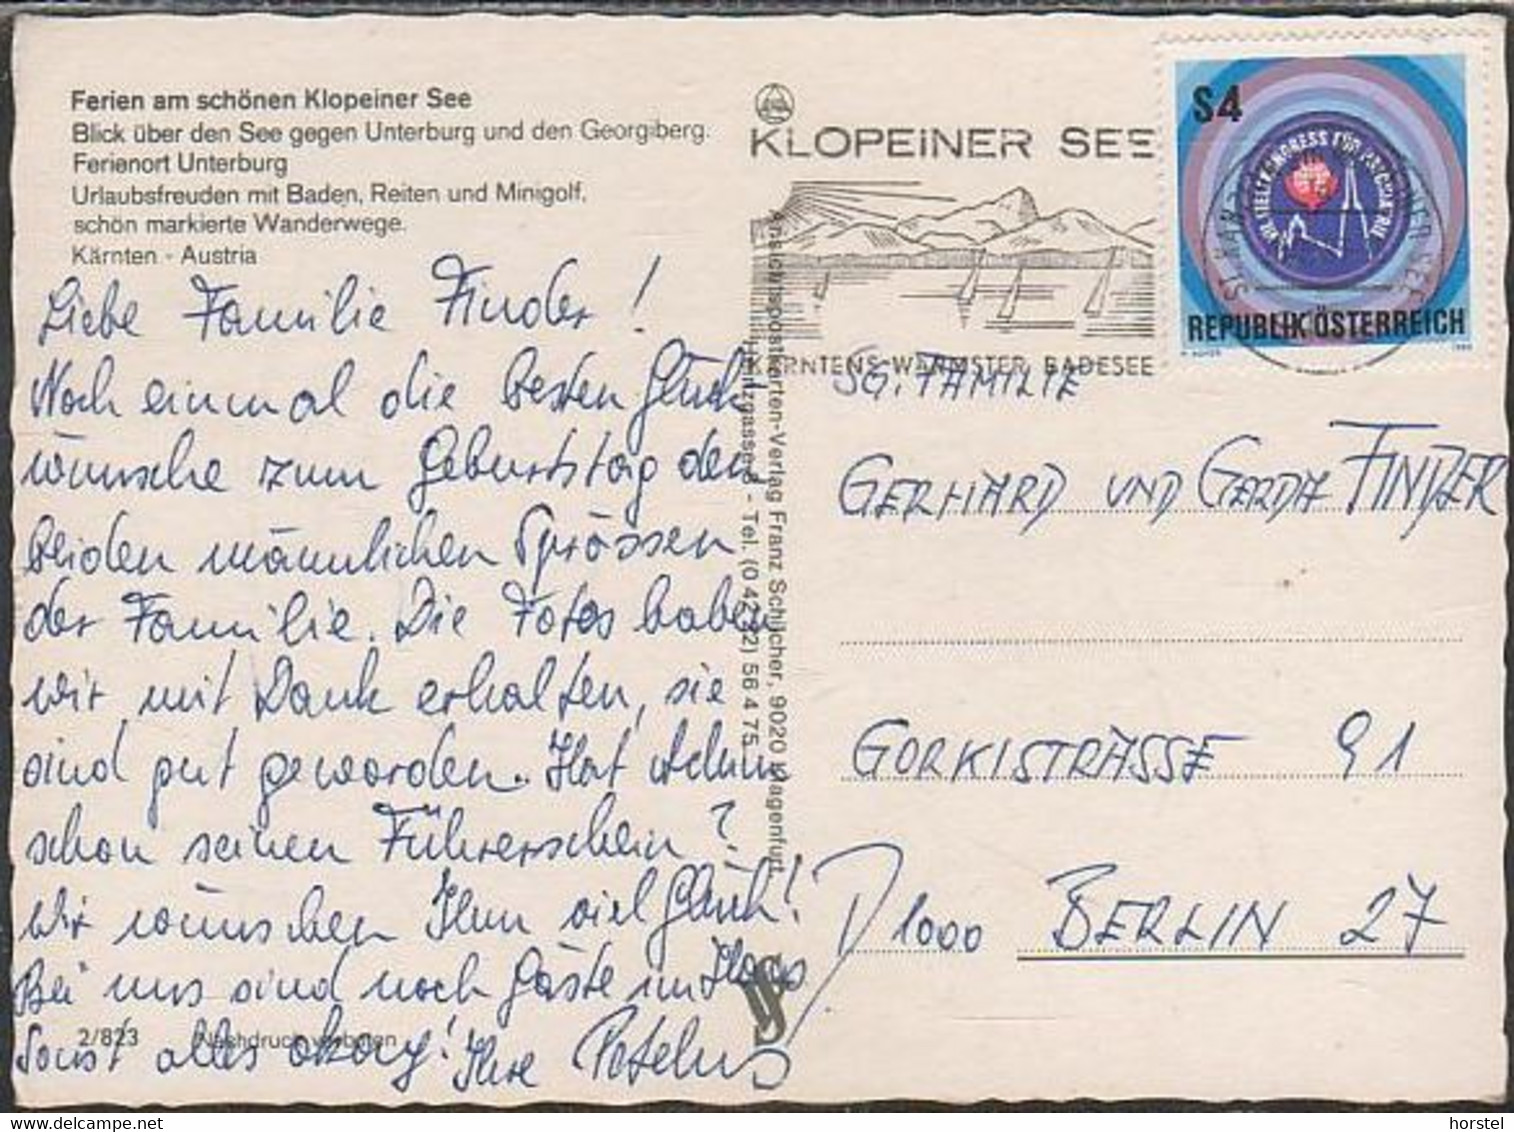 Ferien am schönen Klopeiner See
Blick über den See gegen Unterburg und den Georgiberg.
Ferienort Unterburg
Urlaubsfreuden mit Baden, Reiten und Minigolf,
schön markierte Wanderwege.
Kärnten - Austria
Liebe Familie Finder!
Noch einmal die besten Glück
wünsche zum Geburtstag den
beiden männlichen Sprossen
der Familie. Die Fotos haben
wir mit Dank erhalten, sie
sind gut geworden. Hat
schon seinen Führerschein?
Wir wünschen Ihm viel Glück!
Bei uns sind noch Gäste im Haus
Sonst alles okay! Ihre
2/823 Nachdruck verboten
Ansichtspostkarten-Verlag Franz Schilcher, 9020 Klagenfurt
Tel. (0 42 22) 56 4 75
KLOPEINER SEE
KÄRNTENS WÄRMSTER BADESEE
S4
VII. WELTKONGRESS FÜR PSYCHIATRIE
REPUBLIK ÖSTERREICH
SG. FAMILIE
GERHARD UND GERDA FINDER
GORKISTRASSE 91
D 1000 BERLIN 27
horstel